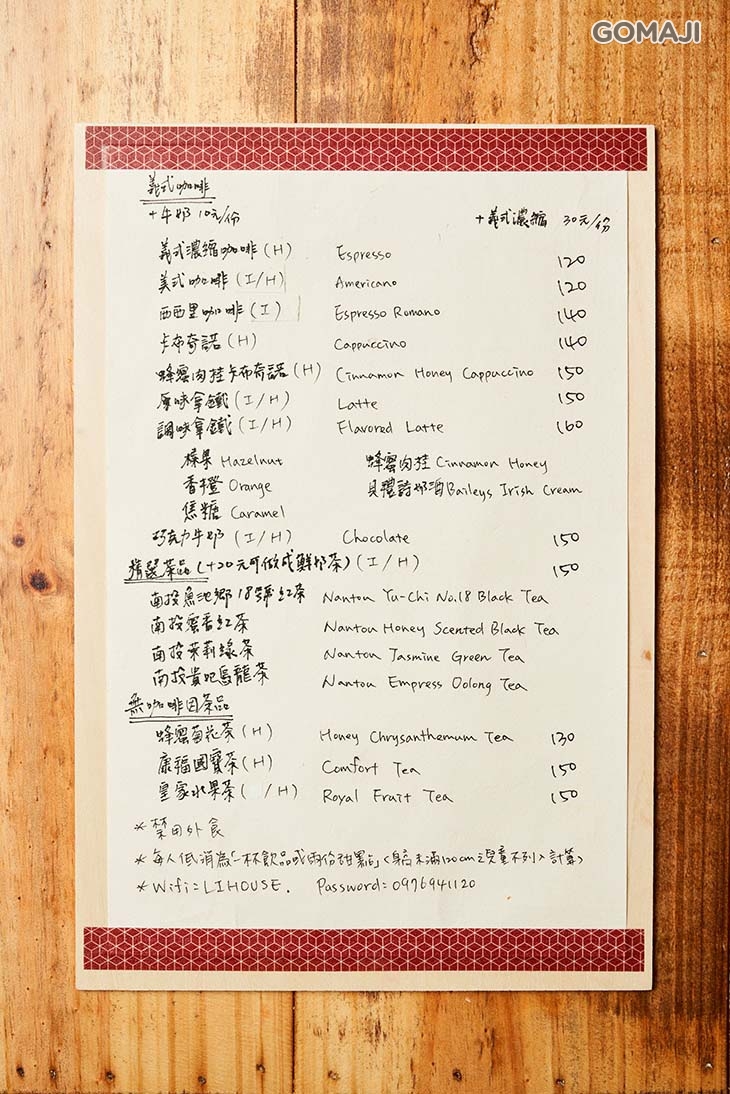 GOMAJI
義式咖啡
+牛奶 10元/份 +義式濃縮 30元/份
義式濃縮咖啡(H) Espresso 120
美式咖啡(I/H) Americano 120
西西里咖啡(I) Espresso Romano 140
卡布奇諾(H) Cappuccino 140
蜂蜜肉桂卡布奇諾(H) Cinnamon Honey Cappuccino 150
原味拿鐵(I/H) Latte 150
調味拿鐵(I/H) Flavored Latte 160
榛果 Hazelnut 蜂蜜肉桂 Cinnamon Honey
香橙 Orange 貝禮詩奶酒 Baileys Irish Cream
焦糖 Caramel
巧克力牛奶(I/H) Chocolate 150
精選茶品(+20元可做成鮮奶茶)(I/H) 150
南投魚池鄉18號紅茶 Nantou Yu-Chi No.18 Black Tea
南投蜜香紅茶 Nantou Honey Scented Black Tea
南投茉莉綠茶 Nantou Jasmine Green Tea
南投貴妃烏龍茶 Nantou Empress Oolong Tea
無咖啡因茶品
蜂蜜菊花茶(H) Honey Chrysanthemum Tea 130
康福國寶茶(H) Comfort Tea 150
皇家水果茶( /H) Royal Fruit Tea 150
*禁用外食
*每人低消為「一杯飲品或兩份甜點」<身高未滿120cm之兒童不列入計算>
*Wifi=LIHOUSE. Password=0976941120